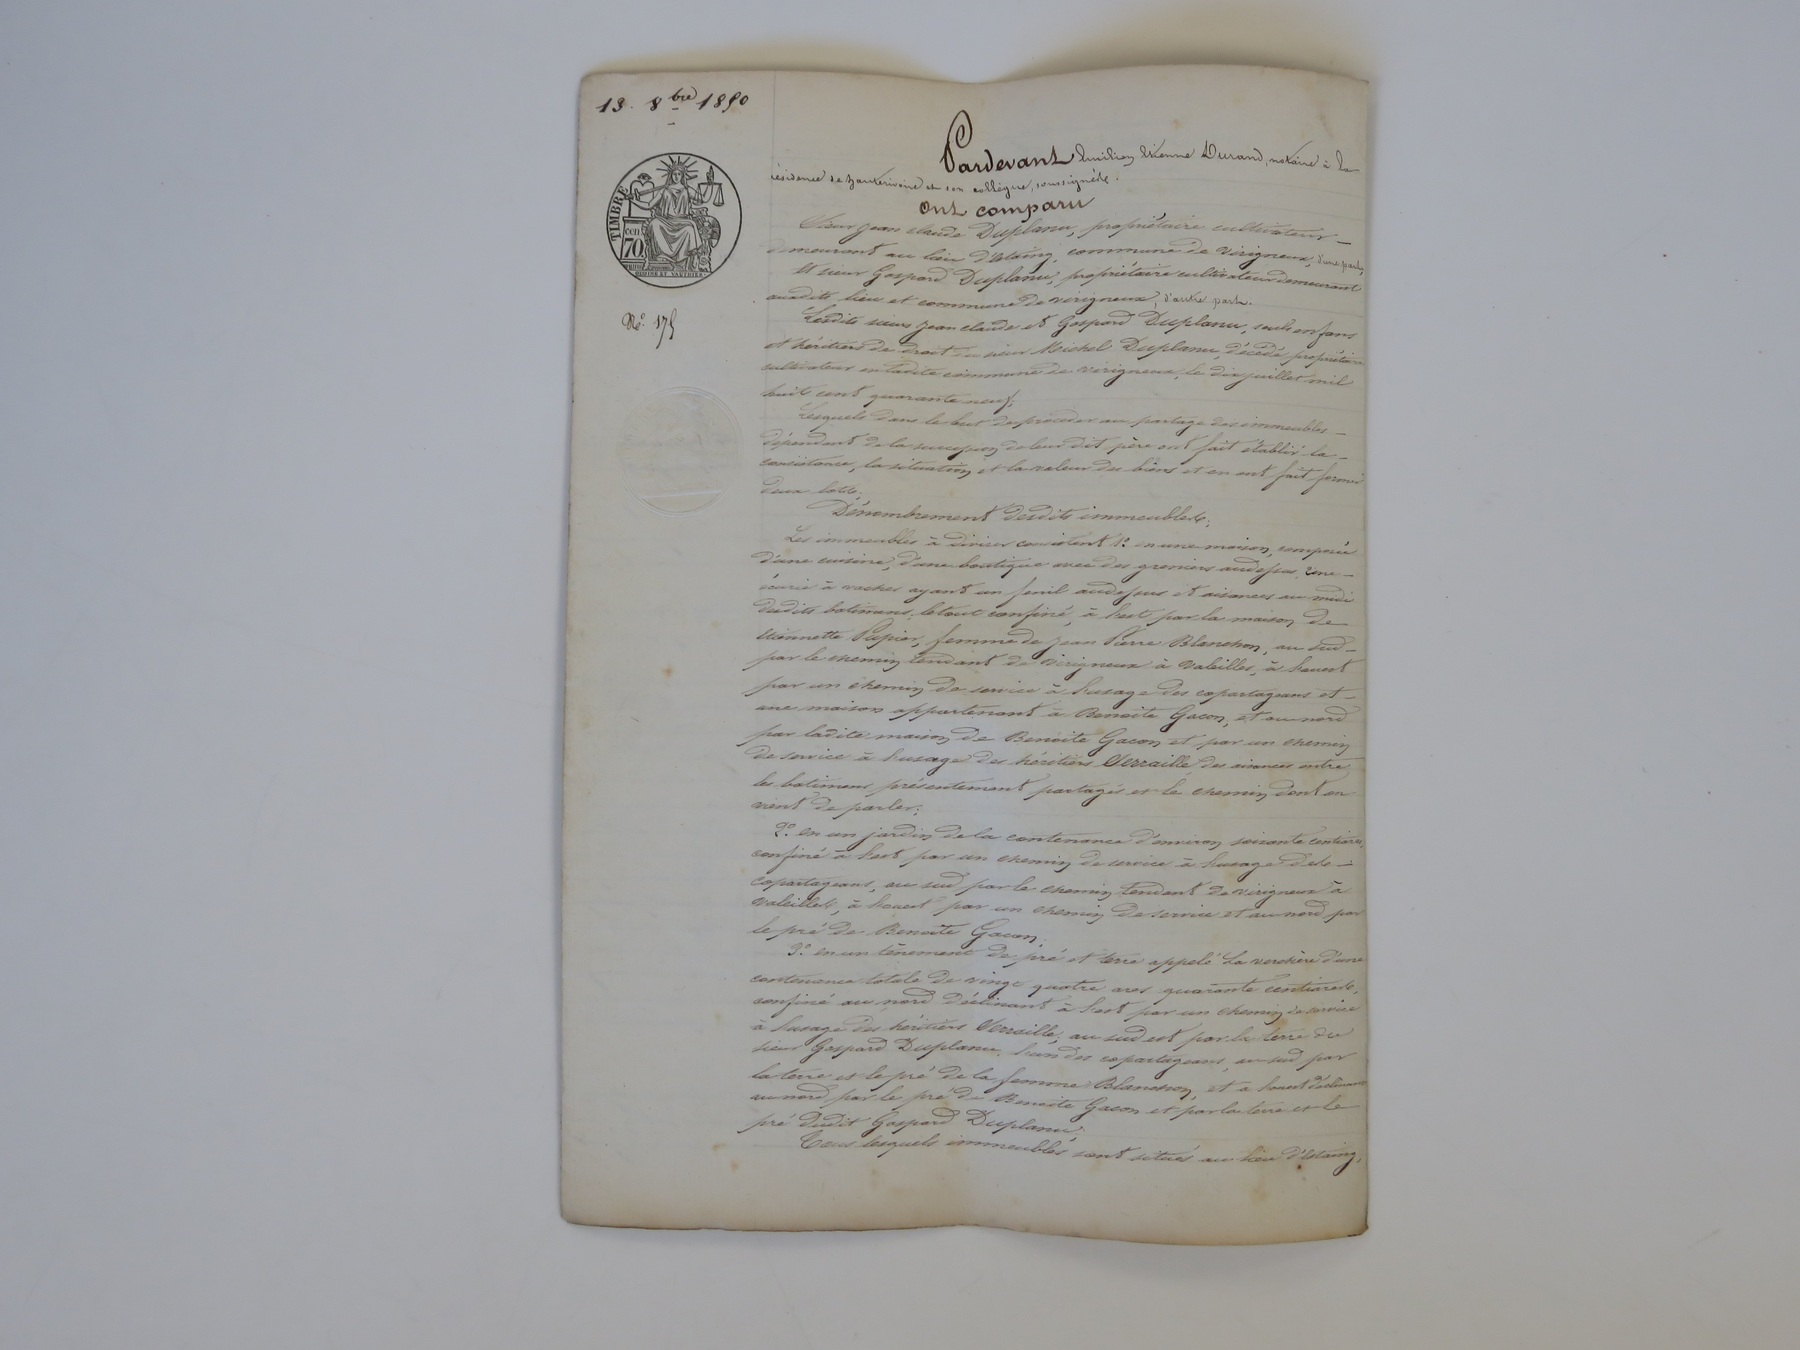 13. 8bre 1850
TIMBRE
cen
70.
No. 175
Pardevant Emilien Etienne Durand, notaire à la
résidence de et son collègue, soussignés.
Ont comparu
Sieur jean claude Duplanu, propriétaire cultivateur
demeurant au lieu d'Estaing, commune de virigneux, d'une part,
Et sieur Gaspard Duplanu, propriétaire cultivateur demeurant
auxdits lieu et commune de virigneux, d'autre part.
Lesdits sieurs jean claude et Gaspard Duplanu, seuls enfans
et héritiers de droit du sieur Michel Duplanu, décédé propriétaire
cultivateur en ladite commune de virigneux, le dix juillet mil
huit cent quarante neuf;
Lesquels dans le but de procéder au partage des immeubles
dépendant de la succession de leur dit père ont fait établir la
consistance, la situation et la valeur des biens et en ont fait former
deux lots.
Dénombrement desdits immeubles;
Les immeubles à diviser consistent 1° en une maison, composée
d'une cuisine, d'une boutique avec des greniers audessus, une
écurie à vaches ayant un fenil audessus et aisances au midi
desdits batimens; le tout confiné, à l'est par la maison de
Etiennette Papier, femme de jean Pierre Blanchon, au sud
par le chemin tendant de virigneux à valeilles, à l'ouest
par un chemin de service à l'usage des copartageans et
une maison appartenant à Benoite Gacon, et au nord
par ladite maison de Benoite Gacon et par un chemin
de service à l'usage des héritiers Verraille, des aisances entre
les batimens présentement partagés et le chemin dont on
vient de parler;
2° en un jardin de la contenance d'environ soixante centiares,
confiné à l'est par un chemin de service à l'usage des
copartageans, au sud par le chemin tendant de virigneux à
valeilles, à l'ouest par un chemin de service et au nord par
le pré de Benoite Gacon;
3° en un tènement de pré et terre appelé La verchère d'une
contenance totale de vingt quatre ares quarante centiares,
confiné au nord déclinant à l'est par un chemin de service
à l'usage des héritiers Verraille, au sud est par la terre du
sieur Gaspard Duplanu, l'un des copartageans, au sud par
la terre et le pré de la femme Blanchon, et à l'ouest déclinant
au nord par le pré de Benoite Gacon et par la terre et le
pré dudit Gaspard Duplanu.
Tous lesquels immeubles sont situés au lieu d'Estaing,